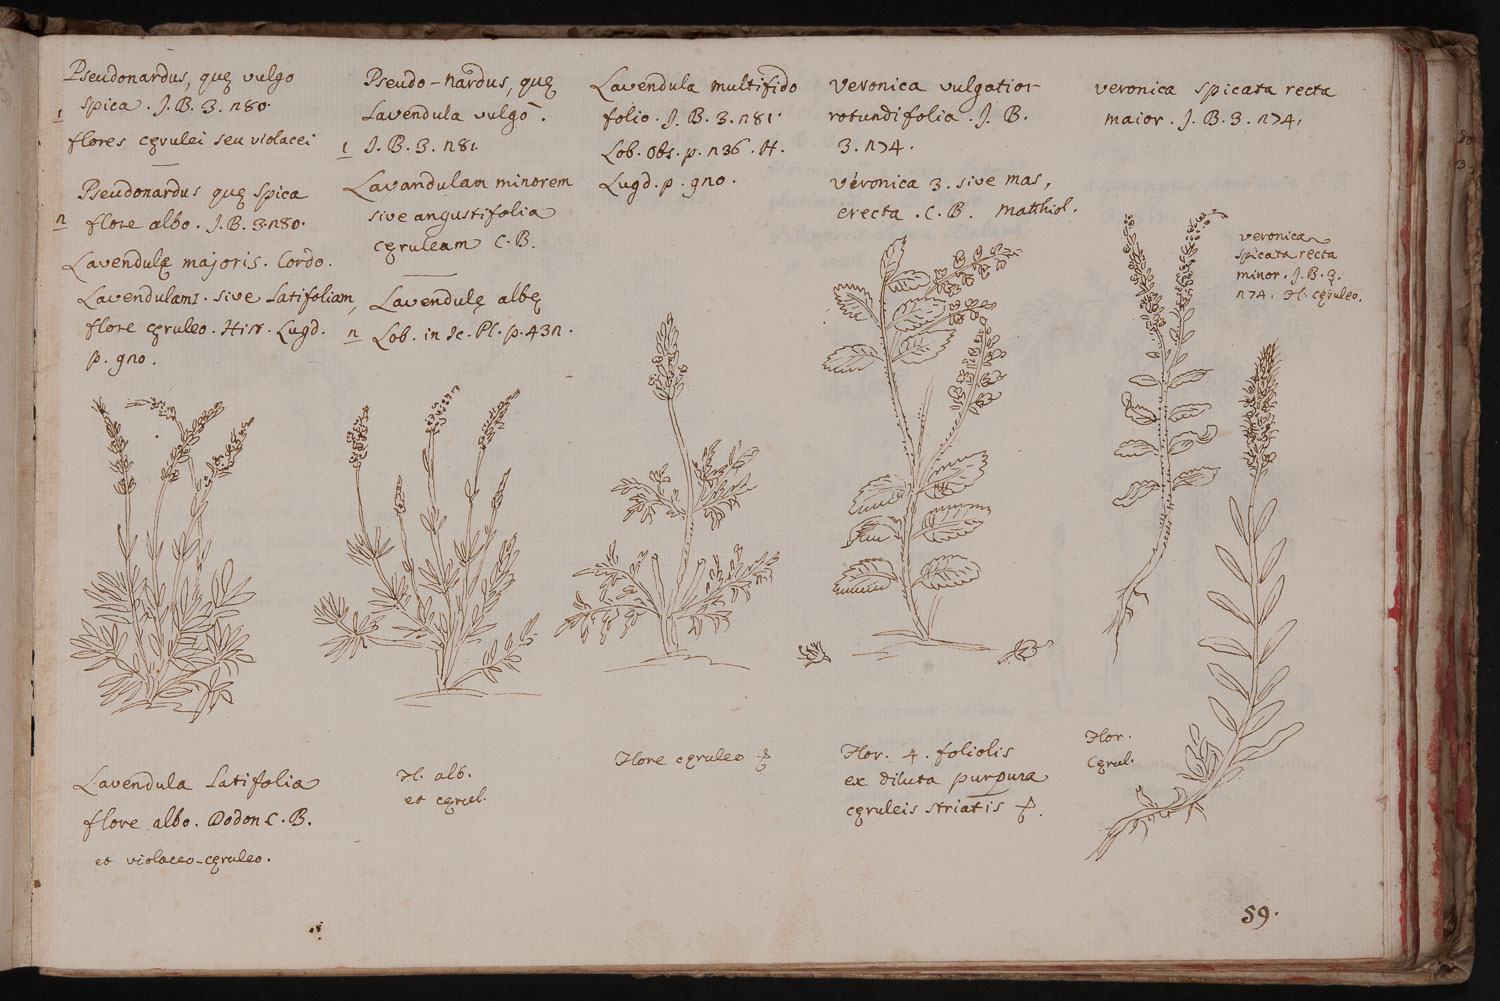 Pseudonardus, quę vulgo
1 spica. J. B. 3. 280.
flores cęrulei seu violacei
Pseudonardus quę spica
2 flore albo. J. B. 3. 280.
Lavendulę majoris. Cordo.
Lavendulam 1. sive Latifoliam,
flore cęruleo. Hist. Lugd.
p. 920.
Pseudo-nardus, quę
Lavendula vulgo.
1 J. B. 3. 281
Lavandulam minorem
sive angustifolia
cęruleam C. B.
Lavendulę albę
2 Lob. in Ic. Pl. p. 432.
Lavendula multifido
folio. J. B. 3. 281.
Lob. Obs. p. 236. H.
Lugd. p. 920.
Veronica vulgatior
rotundifolia. J. B.
3. 274.
Veronica 3. sive mas,
erecta. C. B. Matthiol.
Veronica spicata recta
maior. J. B. 3. 274.
Veronica
spicata recta
minor. J. B. 3.
274. Fl. cęruleo.
Lavendula Latifolia
flore albo. Dodon C. B.
et violaceo-cęruleo.
Fl. alb.
et cęrul.
Flore cęruleo
Flor. 4. foliolis
ex diluta purpura
cęruleis striatis
Flor.
Cęrul.
59.